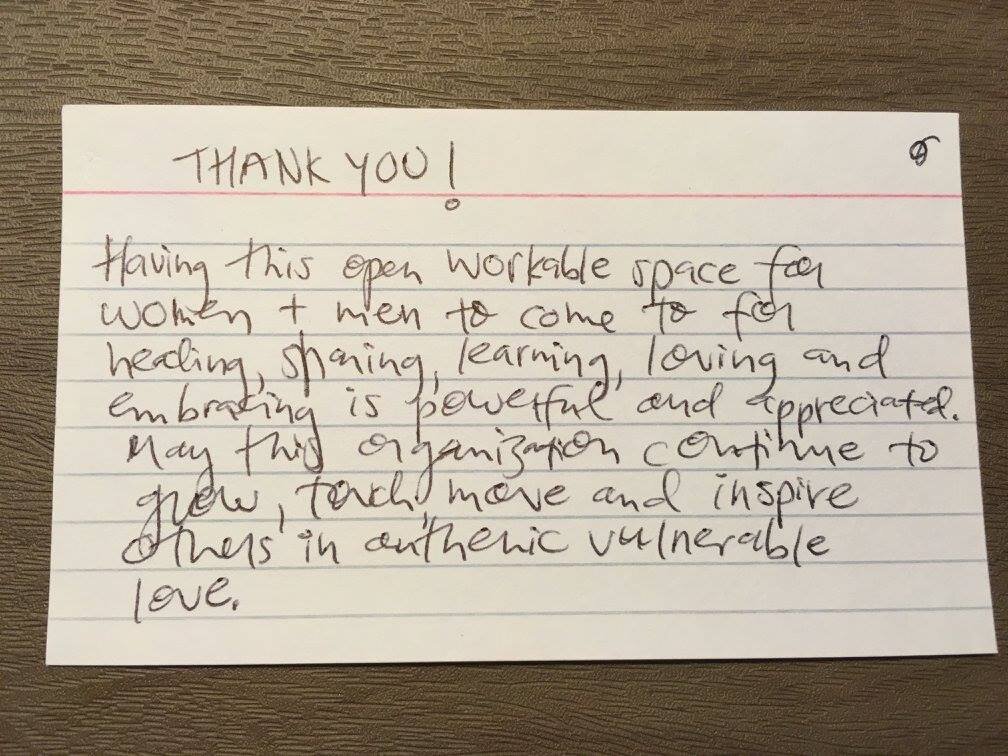 THANK YOU!
Having this open workable space for
women + men to come to for
healing, sharing, learning, loving and
embracing is powerful and appreciated.
May this organization continue to
grow, touch, move and inspire
others in authenic vulnerable
love.